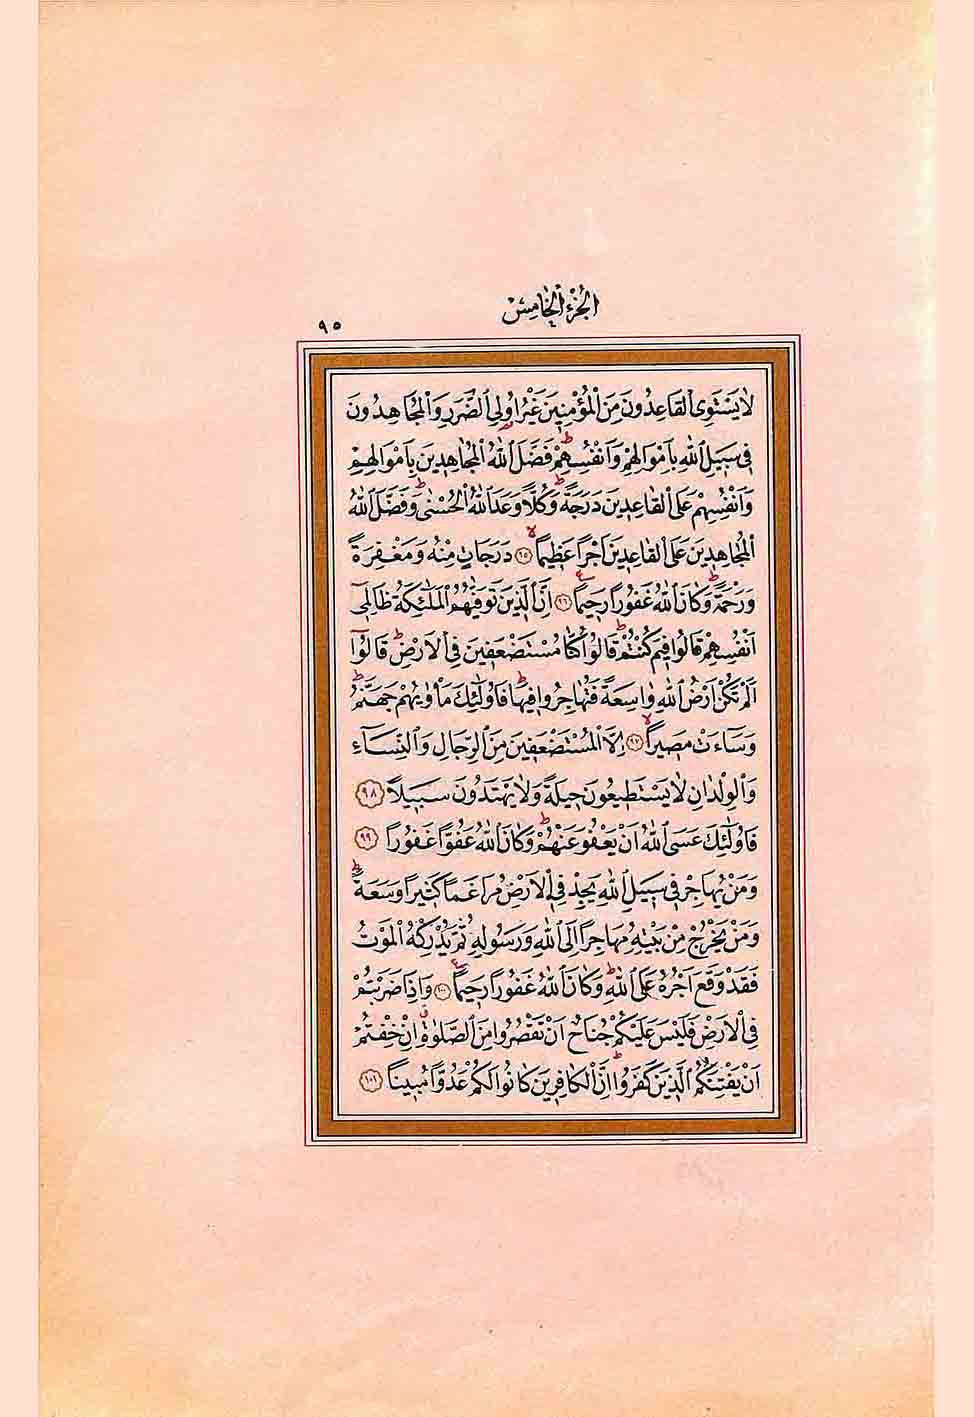 الجزء الخامس
٩٥
لَا يَسْتَوِى الْقَاعِدُونَ مِنَ الْمُؤْمِنِينَ غَيْرُ اُولِى الضَّرَرِ وَالْمُجَاهِدُونَ
فِى سَبِيلِ اللّٰهِ بِاَمْوَالِهِمْ وَاَنْفُسِهِمْ فَضَّلَ اللّٰهُ الْمُجَاهِدِينَ بِاَمْوَالِهِمْ
وَاَنْفُسِهِمْ عَلَى الْقَاعِدِينَ دَرَجَةً وَكُلًّا وَعَدَ اللّٰهُ الْحُسْنٰى وَفَضَّلَ اللّٰهُ
الْمُجَاهِدِينَ عَلَى الْقَاعِدِينَ اَجْرًا عَظِيمًا ٩٥ دَرَجَاتٍ مِنْهُ وَمَغْفِرَةً
وَرَحْمَةً وَكَانَ اللّٰهُ غَفُورًا رَحِيمًا ٩٦ اِنَّ الَّذِينَ تَوَفّٰيهُمُ الْمَلٰٓئِكَةُ ظَالِمِٓى
اَنْفُسِهِمْ قَالُوا فِيمَ كُنْتُمْ قَالُوا كُنَّا مُسْتَضْعَفِينَ فِى الْاَرْضِ قَالُٓوا
اَلَمْ تَكُنْ اَرْضُ اللّٰهِ وَاسِعَةً فَتُهَاجِرُوا فِيهَا فَاُولٰٓئِكَ مَاْوٰيهُمْ جَهَنَّمُ
وَسَٓاءَتْ مَصِيرًا ٩٧ اِلَّا الْمُسْتَضْعَفِينَ مِنَ الرِّجَالِ وَالنِّسَٓاءِ
وَالْوِلْدَانِ لَا يَسْتَطِيعُونَ حِيلَةً وَلَا يَهْتَدُونَ سَبِيلًا ٩٨
فَاُولٰٓئِكَ عَسَى اللّٰهُ اَنْ يَعْفُوَ عَنْهُمْ وَكَانَ اللّٰهُ عَفُوًّا غَفُورًا ٩٩
وَمَنْ يُهَاجِرْ فِى سَبِيلِ اللّٰهِ يَجِدْ فِى الْاَرْضِ مُرَاغَمًا كَثِيرًا وَسَعَةً
وَمَنْ يَخْرُجْ مِنْ بَيْتِهِ مُهَاجِرًا اِلَى اللّٰهِ وَرَسُولِهِ ثُمَّ يُدْرِكْهُ الْمَوْتُ
فَقَدْ وَقَعَ اَجْرُهُ عَلَى اللّٰهِ وَكَانَ اللّٰهُ غَفُورًا رَحِيمًا ١٠٠ وَاِذَا ضَرَبْتُمْ
فِى الْاَرْضِ فَلَيْسَ عَلَيْكُمْ جُنَاحٌ اَنْ تَقْصُرُوا مِنَ الصَّلٰوةِ اِنْ خِفْتُمْ
اَنْ يَفْتِنَكُمُ الَّذِينَ كَفَرُوا اِنَّ الْكَافِرِينَ كَانُوا لَكُمْ عَدُوًّا مُبِينًا ١٠١